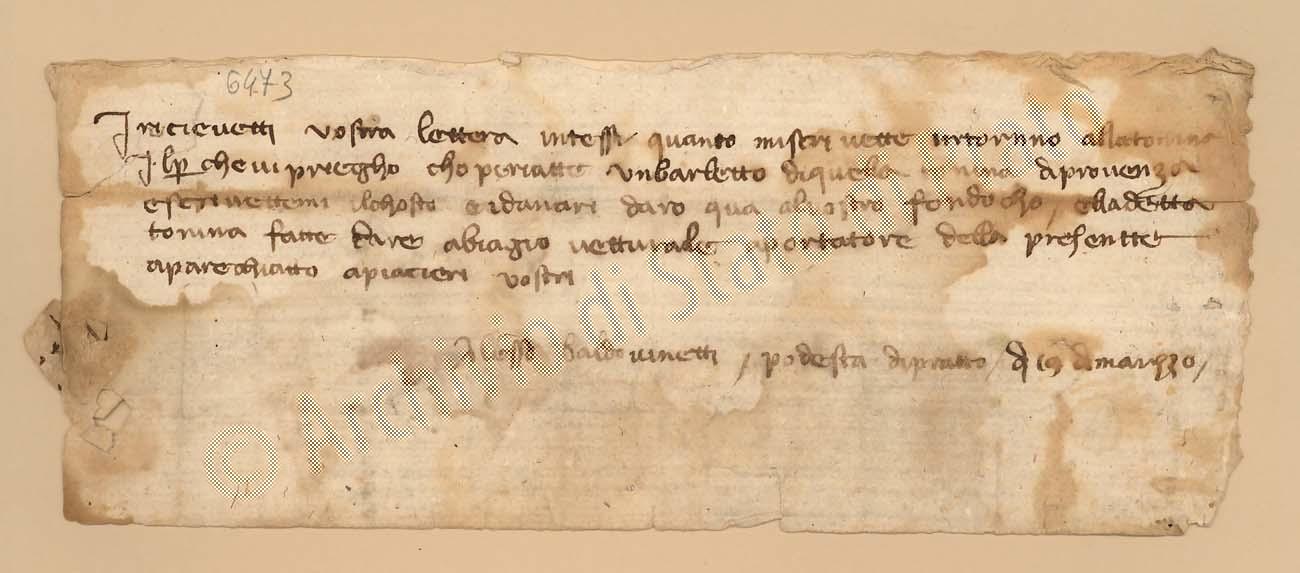 6473
I ricievetti vostra lettera intessi quanto miscrivette intorno allatonina
Il perche vi priegho choperiatte unbarletto diquella tonina diprovenza
escrivettemi ilchosto e idanari daro qua alvostro fondacho / elladetta
tonina fatte dare abiagio vetturale aportatore della presentte
aparechiatto apiacieri vostri
baldovinetti / podesta dipratto / dì 19 dimarzzo /
© Archivio di Stato di Prato